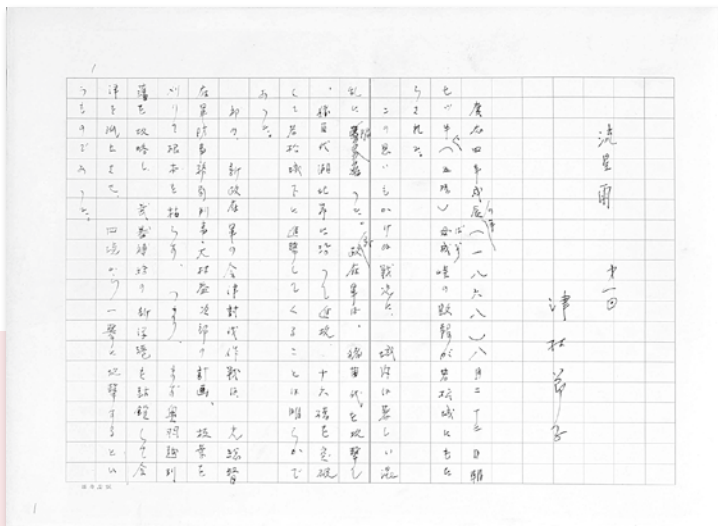 流星雨
第一回
津村節子
慶応四年戊辰(一八六八)八月二十二日朝
七ツ半(五時)、母成峠の敗報が若松城にもた
らされた。
この思いもかけぬ戦況に、城内は甚しい混
乱に陥った。政府軍は、猪苗代を攻撃し
、猪苗代湖北岸に沿って進攻、十六橋を突破
して若松城下に進撃してくることは明らかで
あった。
即ち、新政府軍の会津討伐作戦は、
大村益次郎の計画、枝葉を
刈りて根本を枯らす、つまり、まず奥羽越列
藩を攻略し、
津を孤立させて、四境から一挙に攻撃するとい
うものであった。
1